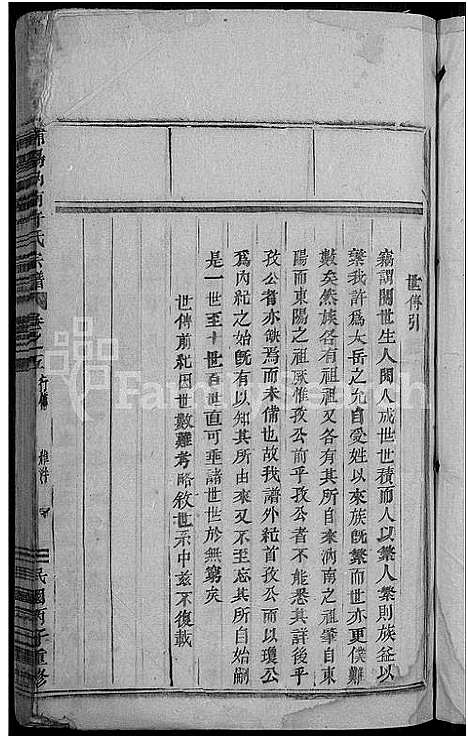 世傳引
竊謂閱世生人閱人成世世積而人以繁人繁則族益以
繁我許爲太岳之允自受姓以來族旣繁而世亦更僕難
數矣然族各有祖祖又各有其所自來汭南之祖肇自東
陽而東陽之祖厥惟孜公前乎孜公者不能悉其詳後乎
孜公者亦缺焉而未備也故我譜外紀首孜公而以瓊公
爲內紀之始旣有以知其所由來又不至忘其所自始嗣
是一世至十世百世直可垂諸世世於無窮矣
世傳前紀因世數難考略敘世系中茲不復載
氏宗譜 卷之五 行傳
民國丙子重修
FamilySearch